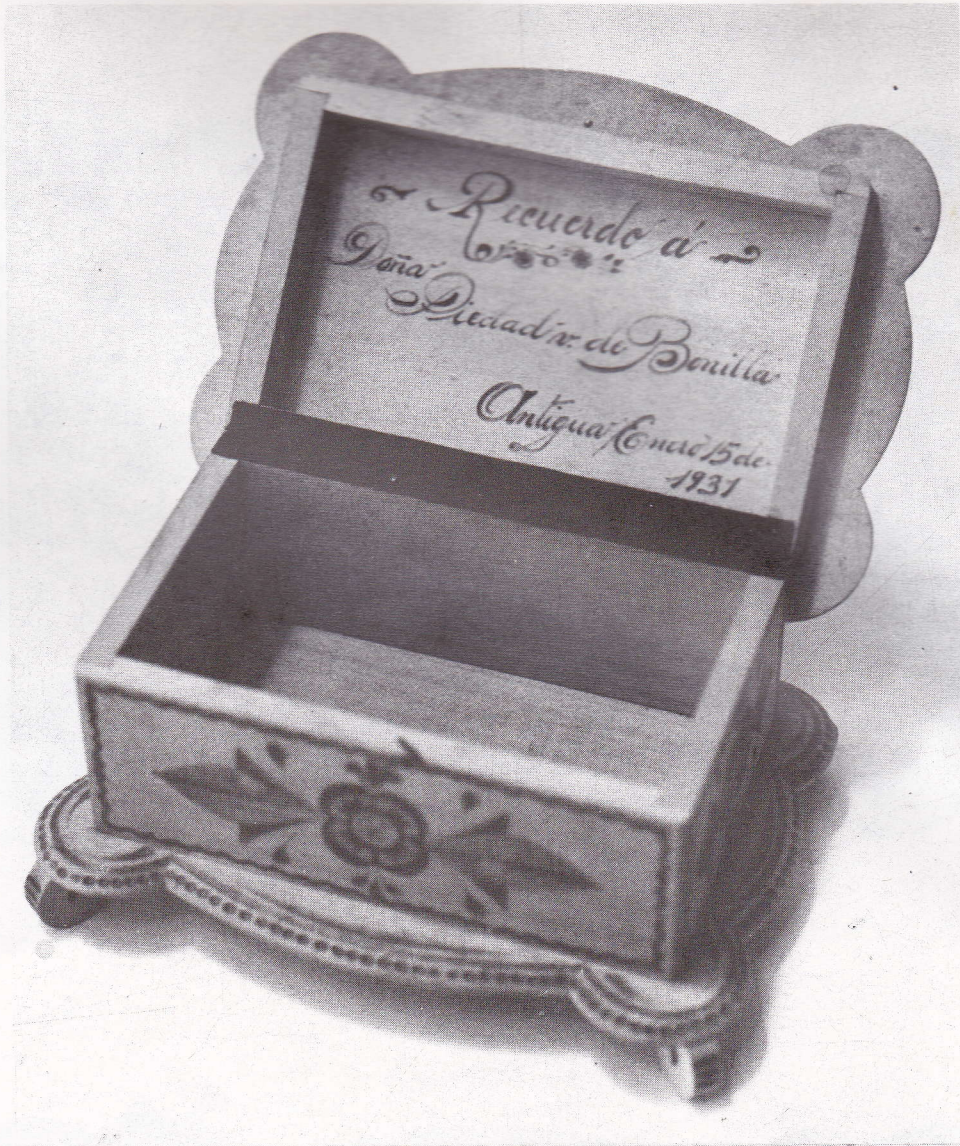 Recuerdo á
Doña
Piedad v. de Bonilla
Antigua, Enero 15 de
1931